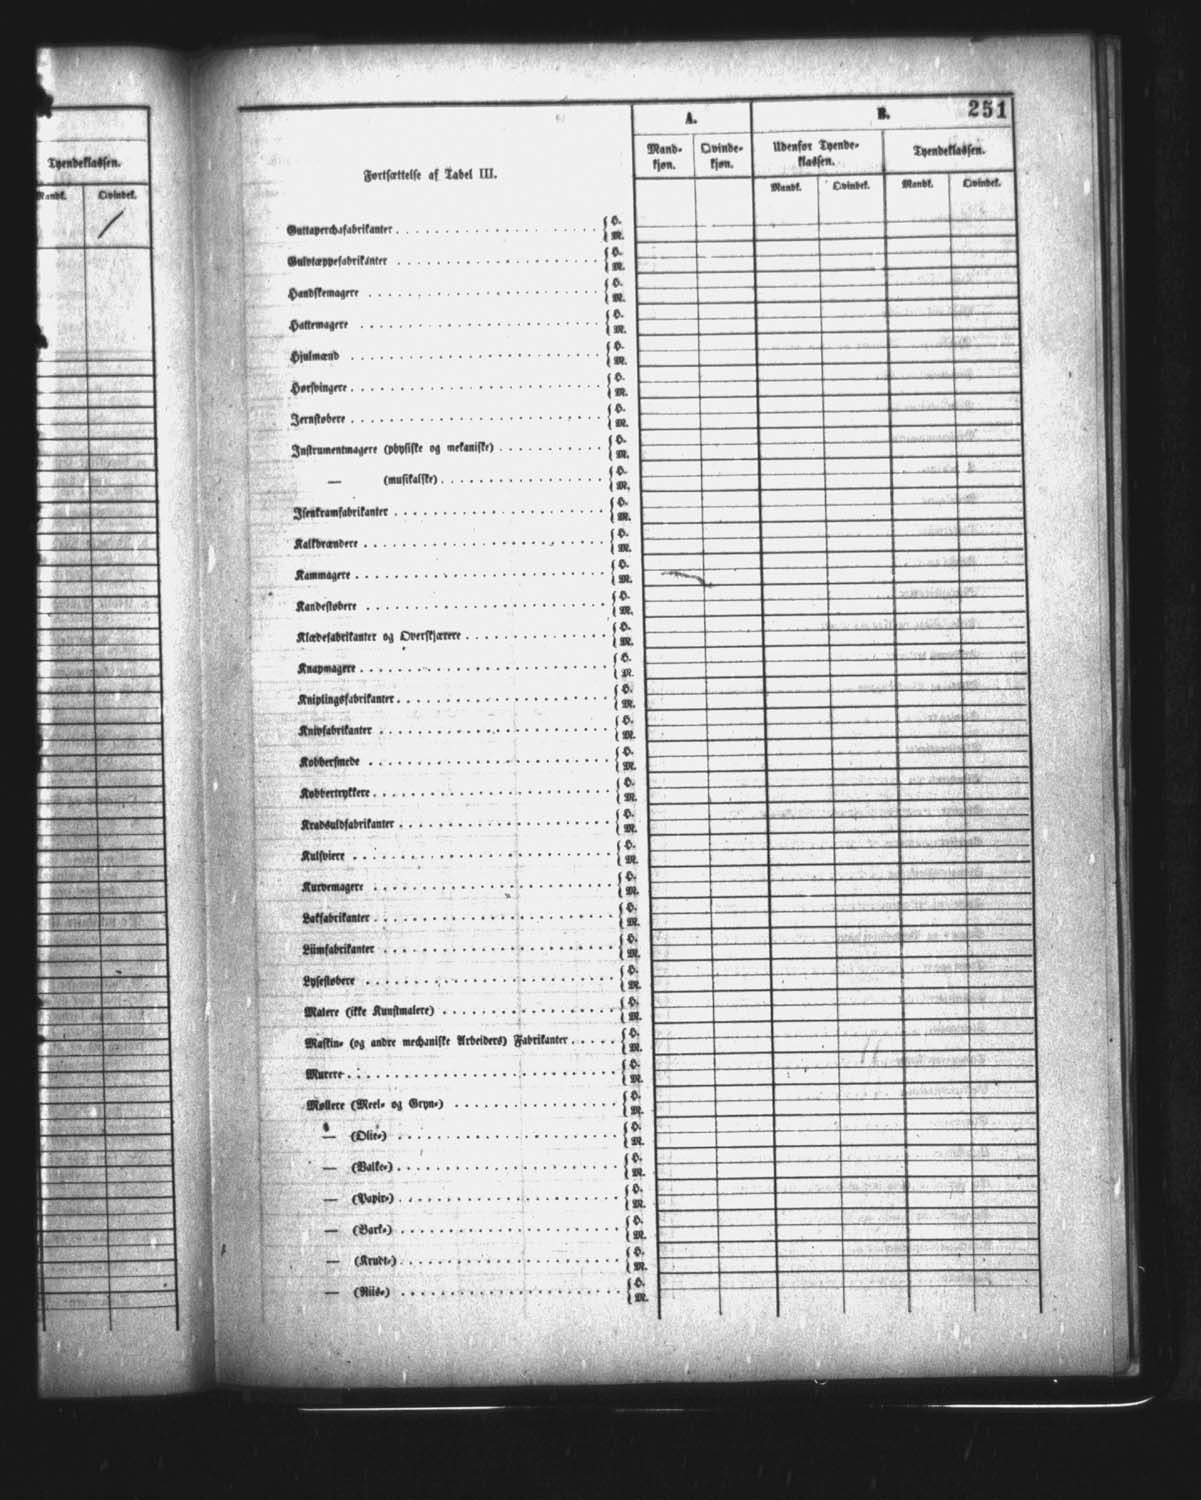 Tyendeklassen.
Mandk. Qvindek.
/
251
A. B.
Fortsættelse af Tabel III.
Mandkjøn. Qvindekjøn. Udenfor Tyendeklassen. Tyendeklassen.
Mandk. Qvindek. Mandk. Qvindek.
Guttaperchafabrikanter { H. M.
Gulvtæppefabrikanter { H. M.
Handskemagere { H. M.
Hattemagere { H. M.
Hjulmænd { H. M.
Hørsvingere { H. M.
Jernstøbere { H. M.
Instrumentmagere (physiske og mekaniske) { H. M.
— (musikalske) { H. M.
Isenkramfabrikanter { H. M.
Kalkbrændere { H. M.
Kammagere { H. M.
Kandestøbere { H. M.
Klædefabrikanter og Overskjærere { H. M.
Knapmagere { H. M.
Kniplingsfabrikanter { H. M.
Knivfabrikanter { H. M.
Kobbersmede { H. M.
Kobbertrykkere { H. M.
Kradsuldfabrikanter { H. M.
Kulsviere { H. M.
Kurvemagere { H. M.
Lakfabrikanter { H. M.
Liimfabrikanter { H. M.
Lysestøbere { H. M.
Malere (ikke Kunstmalere) { H. M.
Maskin- (og andre mechaniske Arbeiders) Fabrikanter { H. M.
Murere { H. M.
Møllere (Meel- og Gryn-) { H. M.
— (Olie-) { H. M.
— (Valke-) { H. M.
— (Papir-) { H. M.
— (Bark-) { H. M.
— (Krudt-) { H. M.
— (Riis-) { H. M.